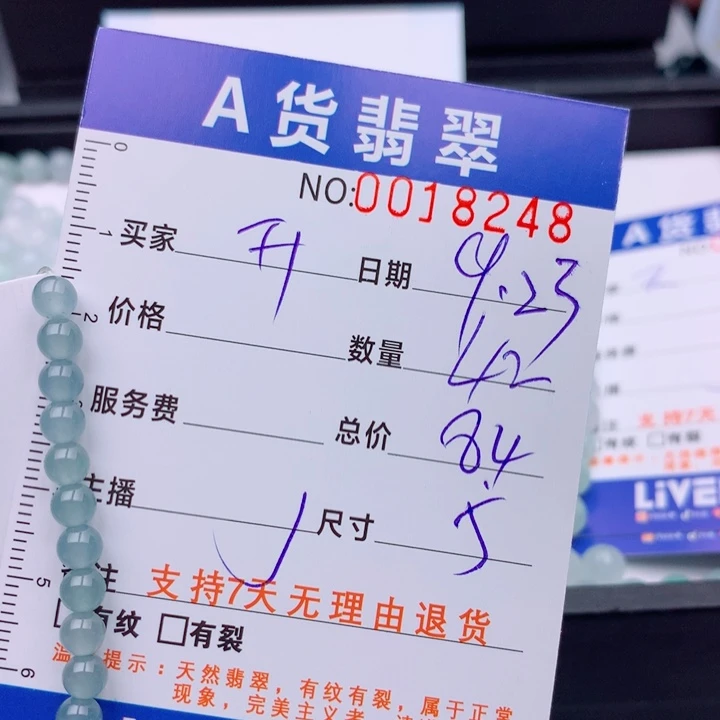 A货翡翠
NO:0018248
买家 日期 4.23
价格 数量 42
服务费 总价 84
主播 尺寸 5
注 支持7天无理由退货
有纹 □有裂
温 提示：天然翡翠，有纹有裂，属于正常
现象，完美主义者
0
1
2
5
6
A货翡
支持7天
□有裂
LiVE